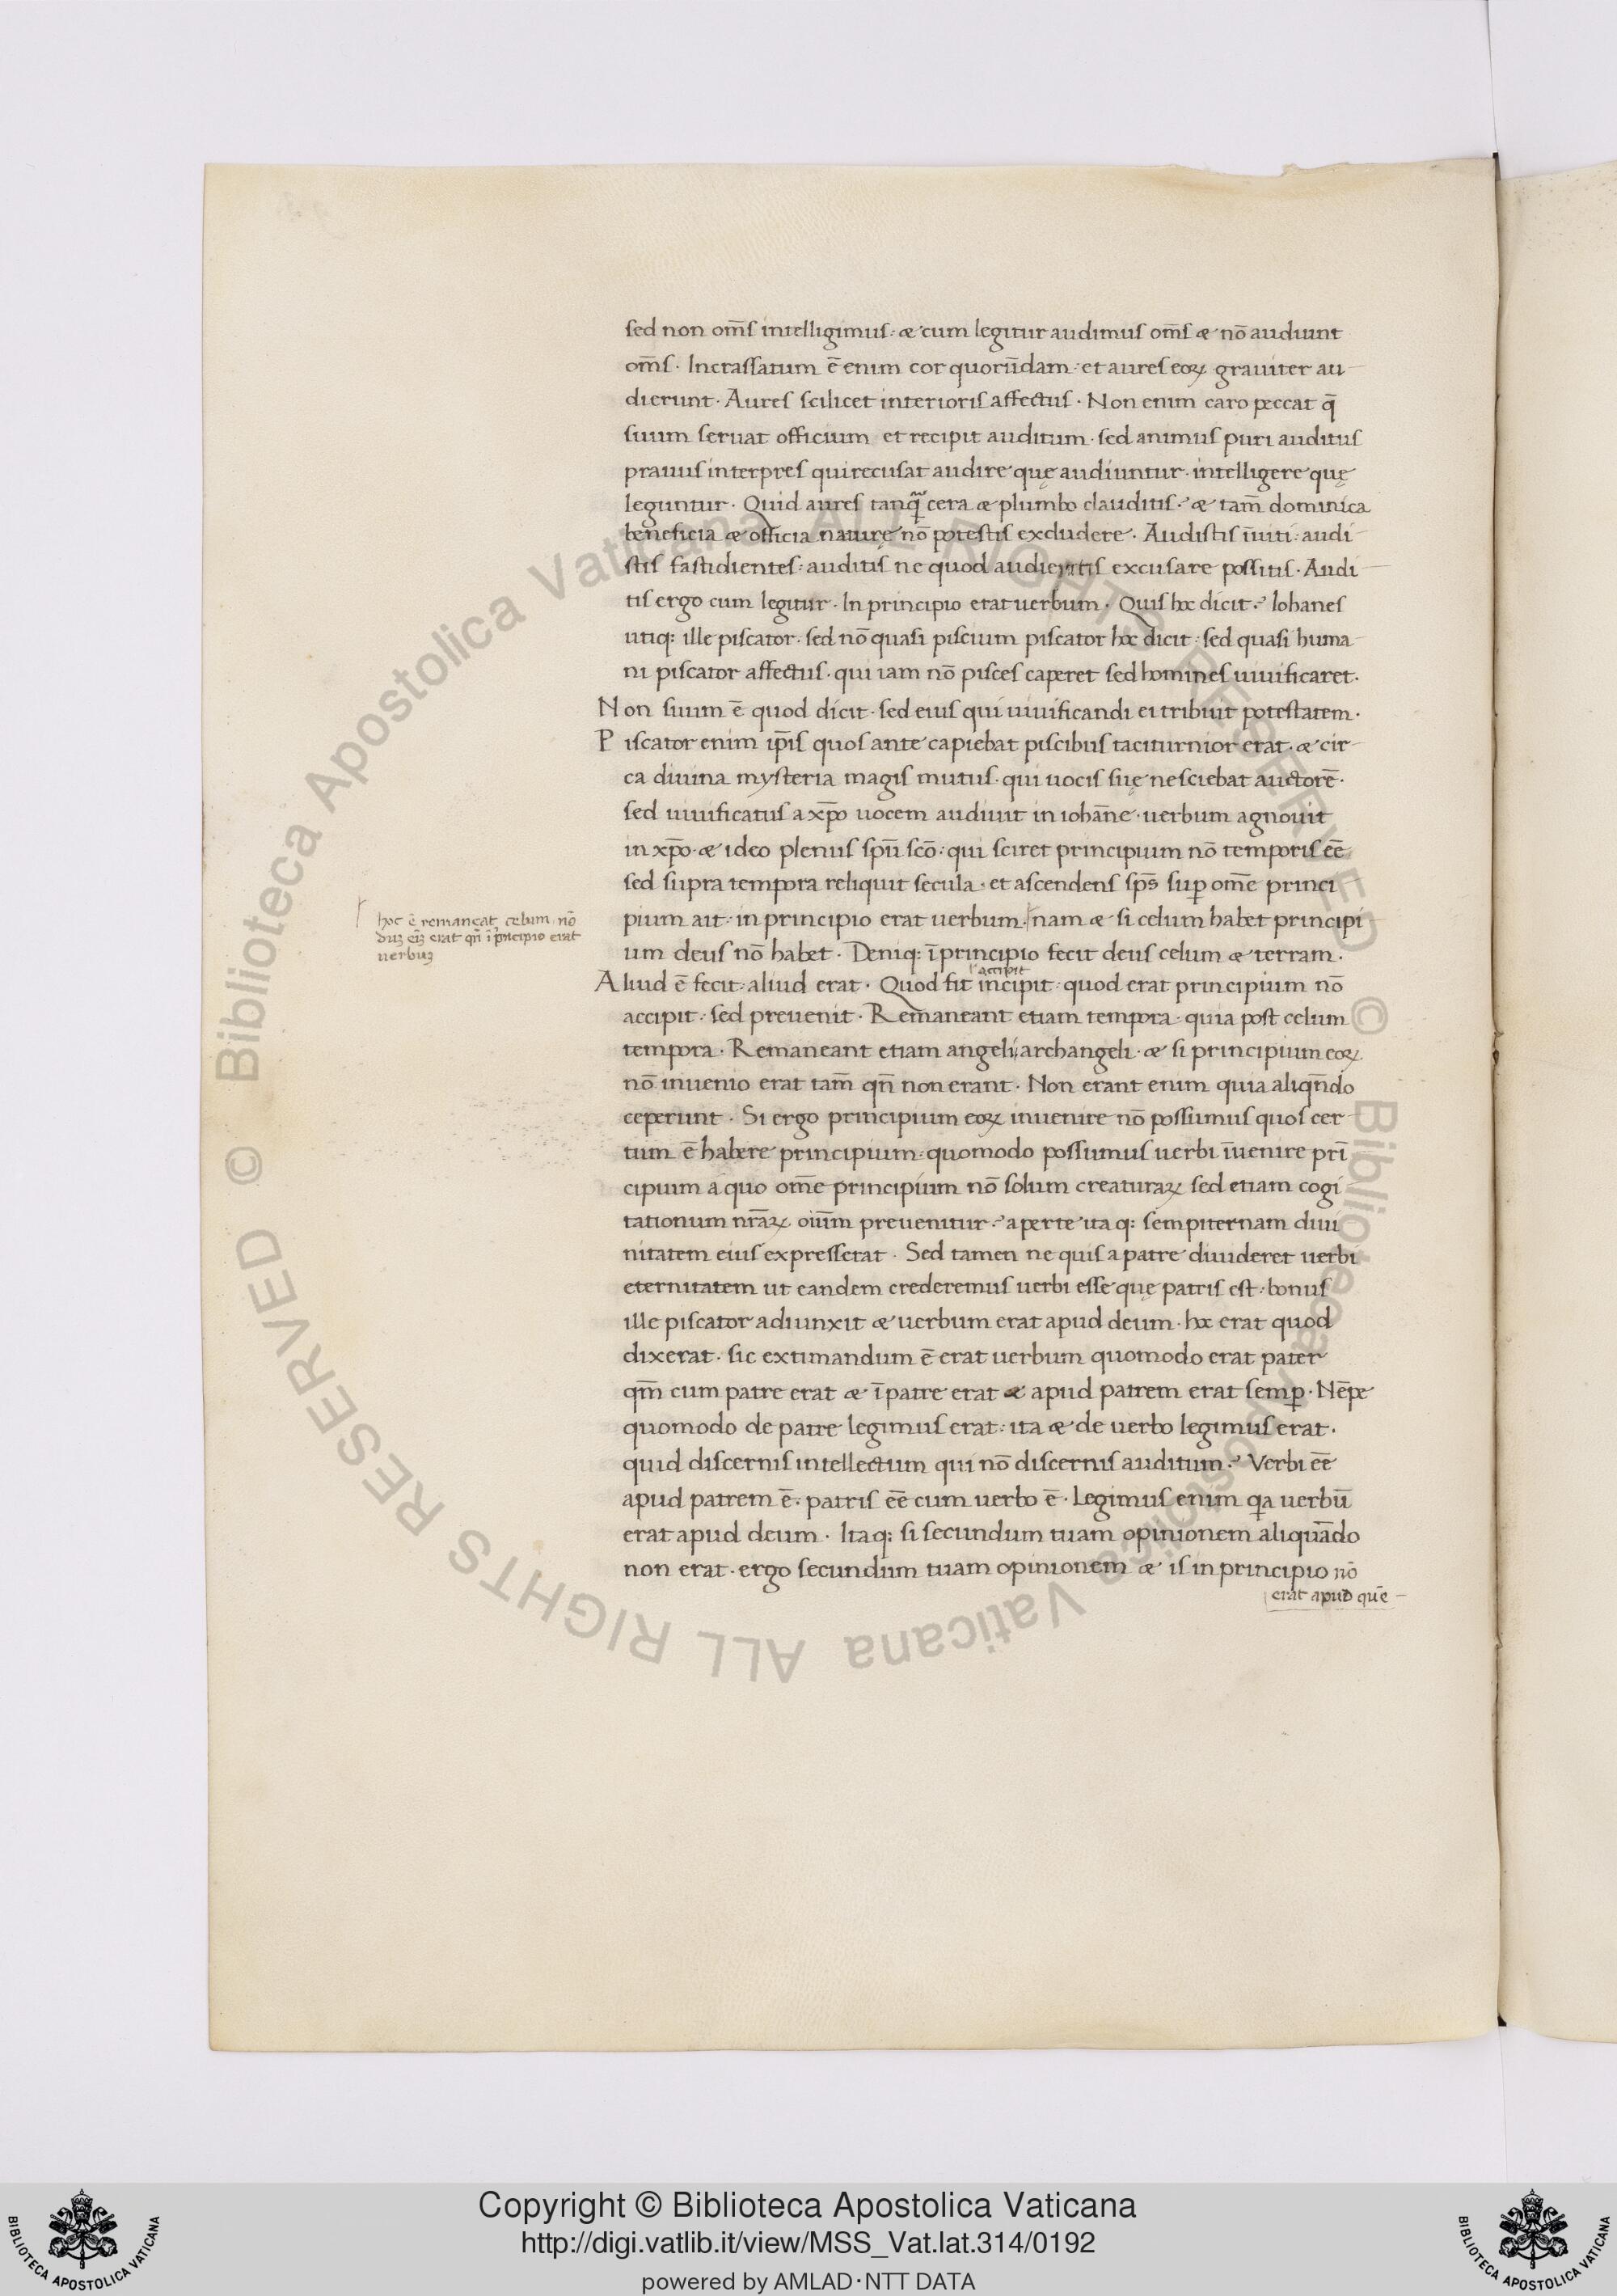 sed non om̄s intelligimus: æ cum legitur audimus om̄s æ nō audiunt
om̄s. Incrassatum ē enim cor quorūdam: et aures eoꝝ graviter au
dierunt. Aures scilicet interioris affectus. Non enim caro peccat q̄
suum seruat officium et recipit auditum. sed animus puri auditus
prauus interpres qui recusat audire quę audiuntur. intelligere quę
leguntur. Quid aures tanq̄ cera æ plumbo clauditis? æ tam̄ dominica
beneficia æ officia naturę nō potestis excludere. Audistis īuiti: audi
stis fastidientes: auditis ne quod audieritis excusare possitis. Audi
tis ergo cum legitur. In principio erat uerbum. Quis hoc dicit? Iohanes
utiq: ille piscator. sed nō quasi piscium piscator hoc dicit: sed quasi huma
ni piscator affectus. qui iam nō pisces caperet sed homines uiuificaret.
Non suum ē quod dicit. sed eius qui uiuificandi ei tribuit potestatem.
Piscator enim ip̄is quos ante capiebat piscibus taciturnior erat. æ cir
ca diuina mysteria magis mutus. qui uocis suę nesciebat auctorē.
sed uiuificatus a xp̄o uocem audiuit in iohāne. uerbum agnouit
in xp̄o. æ ideo plenus spū scō: qui sciret principium nō temporis eē
sed supra tempora reliquit secula. et ascendens sp̄s suꝑ om̄e princi
pium ait: in principio erat uerbum. nam æ si celum habet principi
hoc ē remaneat celum nō
duꝫ eī erat qn̄ ī principio erat
uerbuꝫ
um deus nō habet. Deniq: ī principio fecit deus celum æ terram.
accipit
Aliud ē fecit: aliud erat. Quod fit incipit: quod erat principium nō
accipit: sed preuenit. Remaneant etiam tempora. quia post celum
tempora. Remaneant etiam angeli archangeli. æ si principium eoꝝ
nō inuenio erat tam̄ qn̄ non erant. Non erant enim quia aliqn̄do
ceperunt. Si ergo principium eoꝝ inuenire nō possumus quos cer
tum ē habere principium: quomodo possumus uerbi īuenire prī
cipium a quo om̄e principium nō solum creaturaꝝ sed etiam cogi
tationum nr̄aꝝ oiūm preuenitur? aperte itaq: sempiternam diui
nitatem eius expresserat. Sed tamen ne quis a patre diuideret uerbi
eternitatem ut eandem crederemus uerbi esse quę patris est: bonus
ille piscator adiunxit æ uerbum erat apud deum. hoc erat quod
dixerat. sic extimandum ē erat uerbum quomodo erat pater
qm̄ cum patre erat æ ī patre erat æ apud patrem erat semꝑ. Nēpe
quomodo de patre legimus erat: ita æ de uerbo legimus erat.
quid discernis intellectum qui nō discernis auditum? Verbi eē
apud patrem ē. patris eē cum uerbo ē. Legimus enim qa uerbū
erat apud deum. Itaq: si secundum tuam opinionem aliquādo
non erat. ergo secundum tuam opinionem æ is in principio nō
erat apud quē
© Biblioteca Apostolica Vaticana ALL RIGHTS RESERVED © Biblioteca Apostolica Vaticana ALL RIGHTS RESERVED
Copyright © Biblioteca Apostolica Vaticana
http://digi.vatlib.it/view/MSS_Vat.lat.314/0192
powered by AMLAD·NTT DATA
BIBLIOTECA APOSTOLICA VATICANA
BIBLIOTECA APOSTOLICA VATICANA